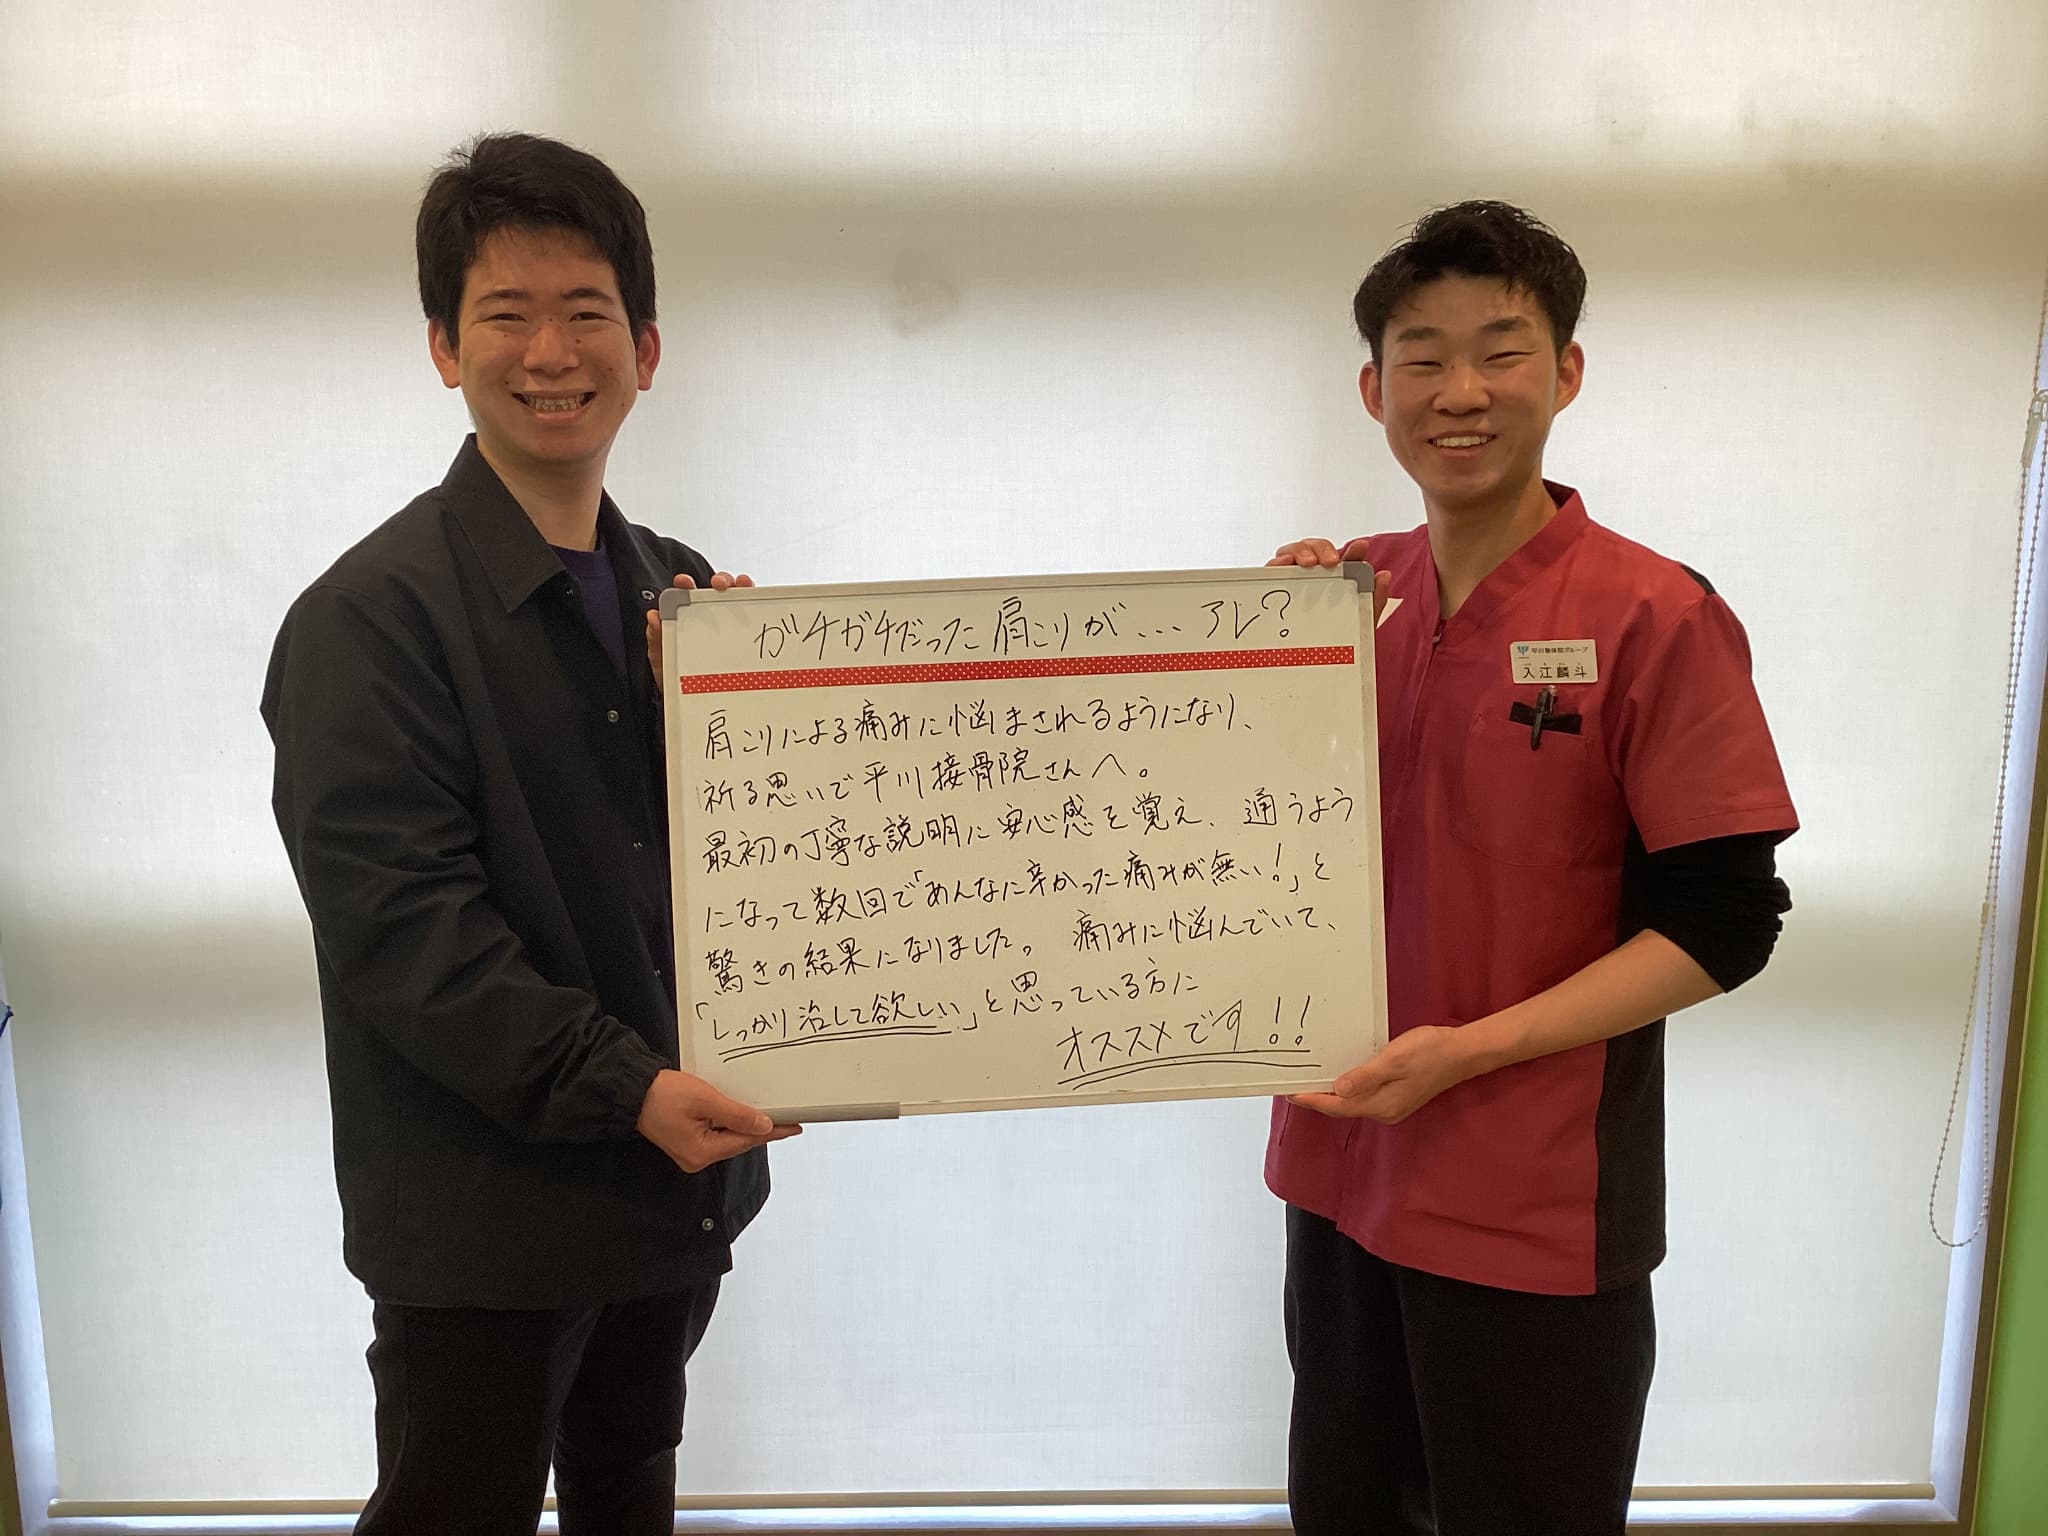 ガチガチだった肩こりが... アレ?
肩こりによる痛みに悩まされるようになり、
祈る思いで平川接骨院さんへ。
最初の丁寧な説明に安心感を覚え、通うよう
になって数回で「あんなに辛かった痛みが無い!」と
驚きの結果になりました。痛みに悩んでいて、
「しっかり治して欲しい」と思っている方に
オススメです!!
平川整体院グループ
入江麟斗